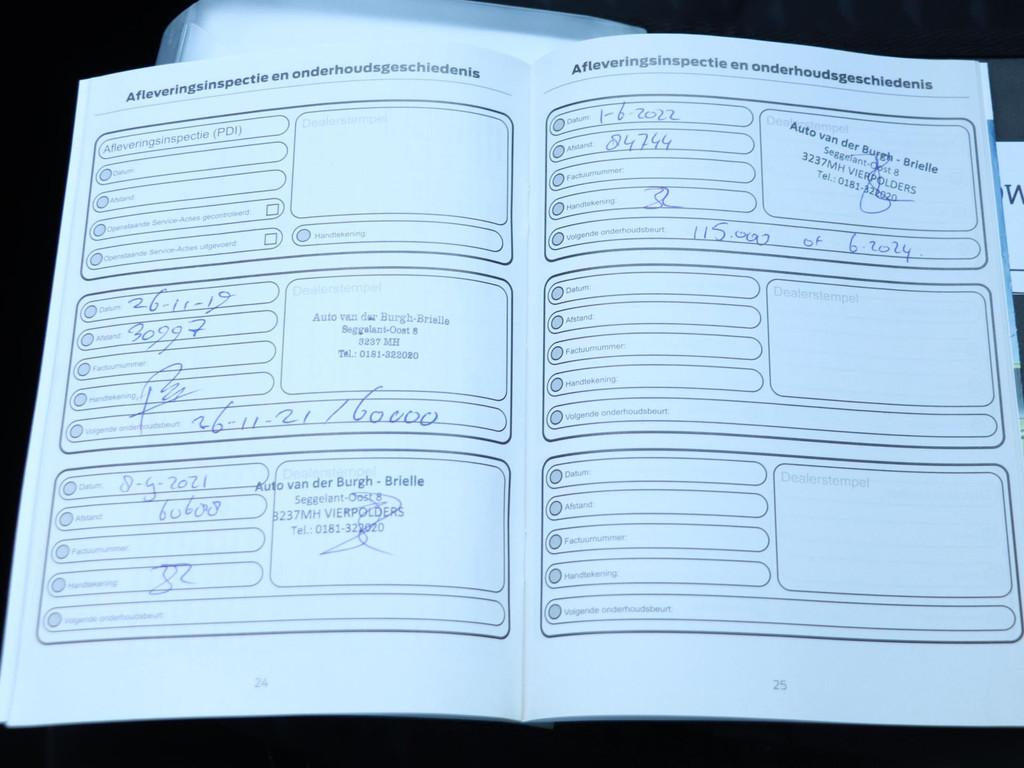 Afleveringsinspectie en onderhoudsgeschiedenis
Afleveringsinspectie (PDI)
Dealerstempel
Datum:
Afstand:
Openstaande Service-Acties gecontroleerd:
Openstaande Service-Acties uitgevoerd:
Handtekening:
Datum: 26-11-19
Afstand: 30997
Factuurnummer:
Handtekening:
Volgende onderhoudsbeurt: 26-11-21 / 60000
Dealerstempel
Auto van der Burgh-Brielle
Seggelant-Oost 8
3237 MH
Tel.: 0181-322020
Datum: 8-9-2021
Afstand: 60608
Factuurnummer:
Handtekening:
Volgende onderhoudsbeurt:
Dealerstempel
Auto van der Burgh - Brielle
Seggelant-Oost 8
3237MH VIERPOLDERS
Tel.: 0181-322020
24
Afleveringsinspectie en onderhoudsgeschiedenis
Datum: 1-6-2022
Afstand: 84744
Factuurnummer:
Handtekening:
Volgende onderhoudsbeurt: 115.000 of 6.2024.
Dealerstempel
Auto van der Burgh - Brielle
Seggelant-Oost 8
3237MH VIERPOLDERS
Tel.: 0181-322020
Datum:
Afstand:
Factuurnummer:
Handtekening:
Volgende onderhoudsbeurt:
Dealerstempel
Datum:
Afstand:
Factuurnummer:
Handtekening:
Volgende onderhoudsbeurt:
Dealerstempel
25